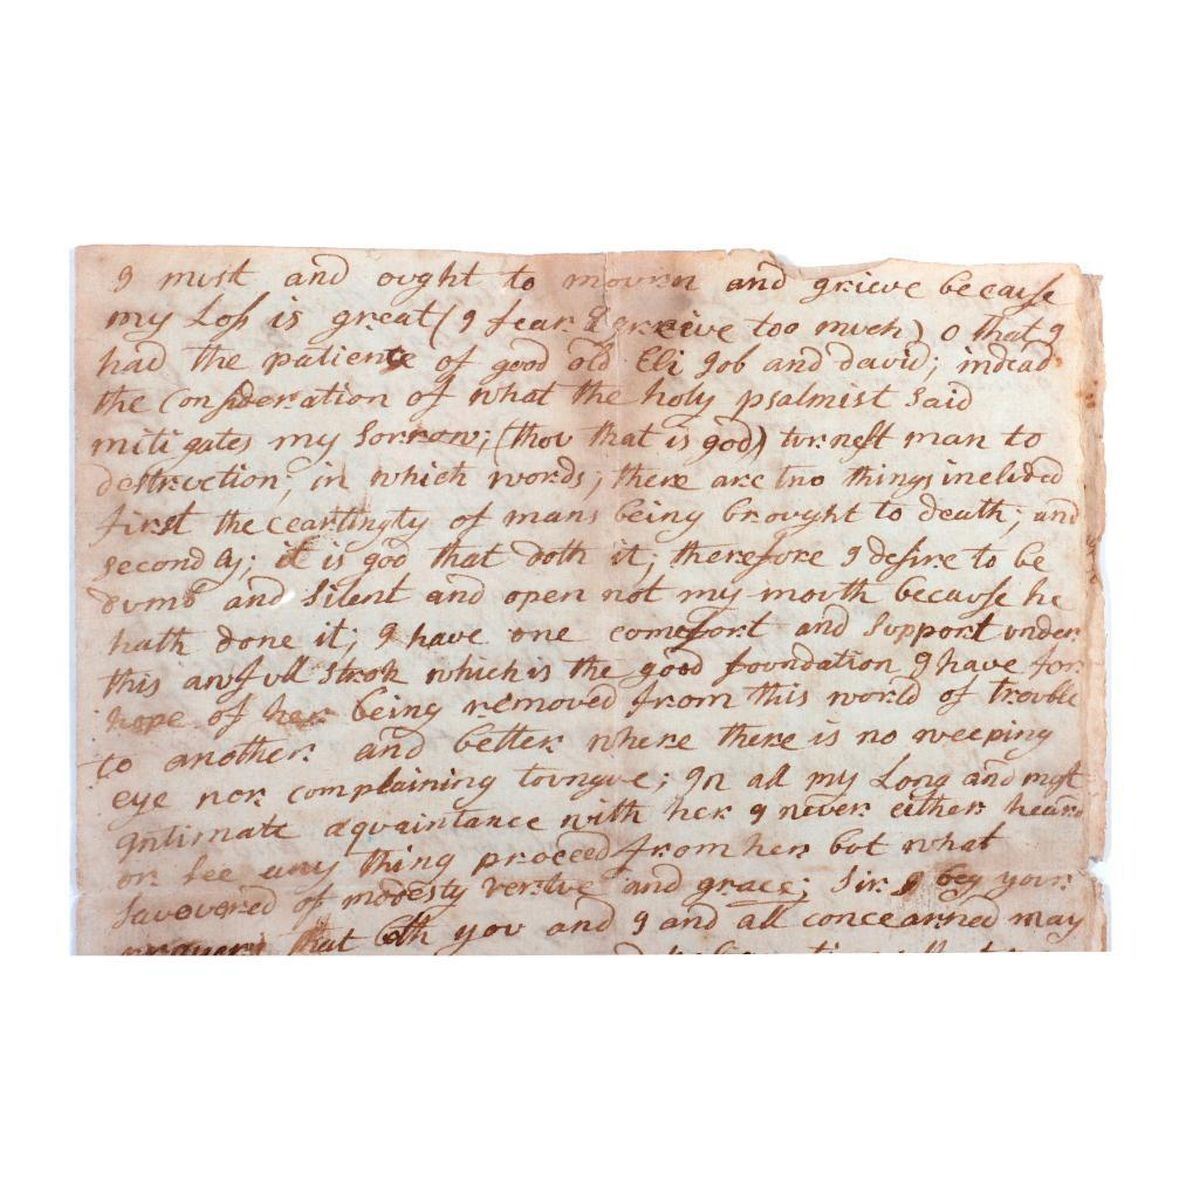 I must and ought to mourn and grieve because
my Loss is great (I fear I greive too much) o that I
had the patience of good old Eli Job and david; indead
the Consideration of what the holy psalmist said
mitigates my sorrow; (thou that is god) turnest man to
destruction; in which words; there are two things inclided
first the ceartingty of mans being brought to death; and
secondly; it is god that doth it; therefore I desire to be
dumb and silent and open not my mouth because he
hath done it; I have one comefort and support under
this awfull strok which is the good foundation I have for
hope of her being removed from this world of trouble
to another and better where there is no weeping
eye nor complaining toungue; In all my Long and most
Intimate aquaintance with her I never either heard
or see any thing proceed from her but what
savovered of modesty vertue and grace; Sir I beg your
prayers that both you and I and all concearned may